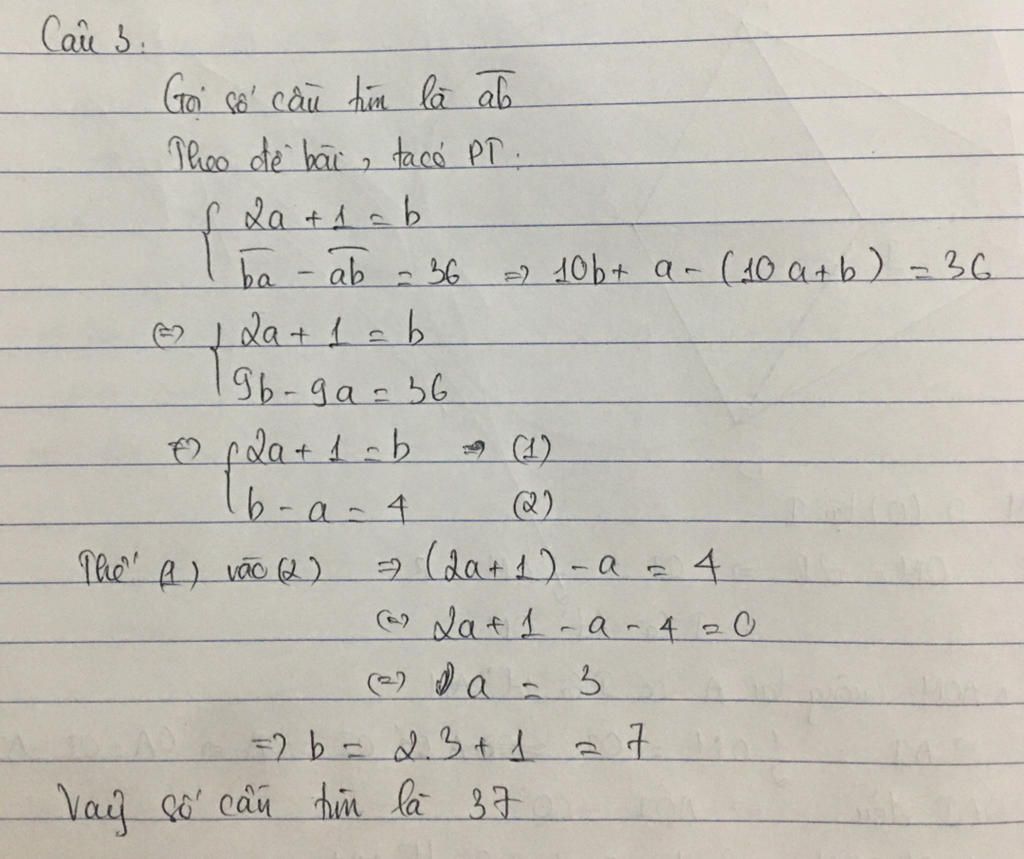 Câu 3:
Gọi số cần tìm là a̅b̅
Theo đề bài, ta có PT:
{ 2a + 1 = b
b̅a̅ - a̅b̅ = 36 => 10b + a - (10a + b) = 36
<=> { 2a + 1 = b
9b - 9a = 36
<=> { 2a + 1 = b => (1)
b - a = 4 (2)
Thế (1) vào (2) => (2a + 1) - a = 4
<=> 2a + 1 - a - 4 = 0
<=> a = 3
=> b = 2.3 + 1 = 7
Vậy số cần tìm là 37